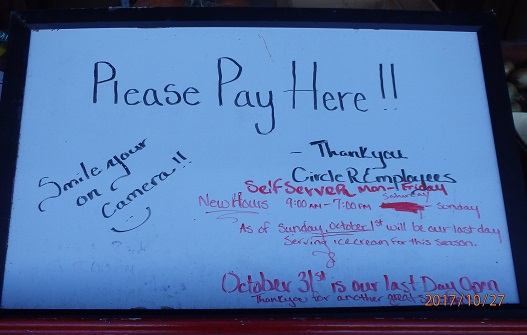 Please Pay Here!!
Smile your
on
Camera!!
- Thank you
Circle R Employees
Self Server Mon - Friday
New Hours 9:00 AM - 7:00 PM Saturday - Sunday
As of Sunday, October 1st will be our last day
Serving ice cream for this season.
October 31st is our last Day Open
Thank you for another great
2017/10/27